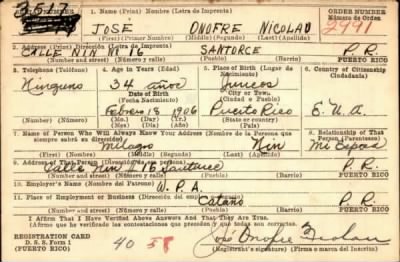 SERIAL NUMBER 1. Name (Print) Nombre (Letra de Imprenta) ORDER NUMBER
Número de Orden
3517
JOSÉ ONOFRE NICOLAU 2991
(First) (Primer Nombre) (Middle) (Segundo) (Last) (Apellido)
2. Address (Print) Dirección (Letra de Imprenta)
CALLE NIN № 16 SANTURCE P. R.
(Number) (Número) (Street) (Calle) (Town) (Pueblo) PUERTO RICO
3. Telephone (Teléfono) 4. Age in Years (Edad) 5. Place of Birth (Lugar de Nacimiento) 6. Country of Citizenship
Ciudadanía)
Ninguno 34 años Juncos
Date of Birth
(Fecha Nacimiento) City or Town.
(Ciudad o Pueblo)
Febrero 18 1906 Puerto Rico E. U. A.
(Number) (Número) (Mo.) (Day) (Yr.)
(Mes) (Día) (Año) (Country) (País)
7. Name of Person Who Will Always Know Your Address (Nombre de la Persona que siempre sabrá su dirección) 8. Relationship of That Person (Parentesco)
Milagro Nin Mi Esposa
(First) (Primer Nombre) (Middle) (Segundo) (Last) (Apellido)
9. Address of That Person (Dirección de esa Persona)
Calle Nin #16 Santurce P. R.
(Number) (Número) (Street) (Calle) (Town) (Pueblo) PUERTO RICO
10. Employer's Name (Nombre del Patrono)
W. P. A.
11. Place of Employment or Business (Dirección del Empleo)
Cataño P. R.
(Number) (Número) (Street) (Calle) (Town) (Pueblo) PUERTO RICO
I Affirm That I Have Verified Above Answers And That They Are True.
(Afirmo que he verificado las contestaciones que preceden y que todas son correctas.)
REGISTRATION CARD
D. S. S. Form 1
(PUERTO RICO)
40 58
José Onofre Nicolau
(Registrant's signature) (Firma o marca del Inscrito)